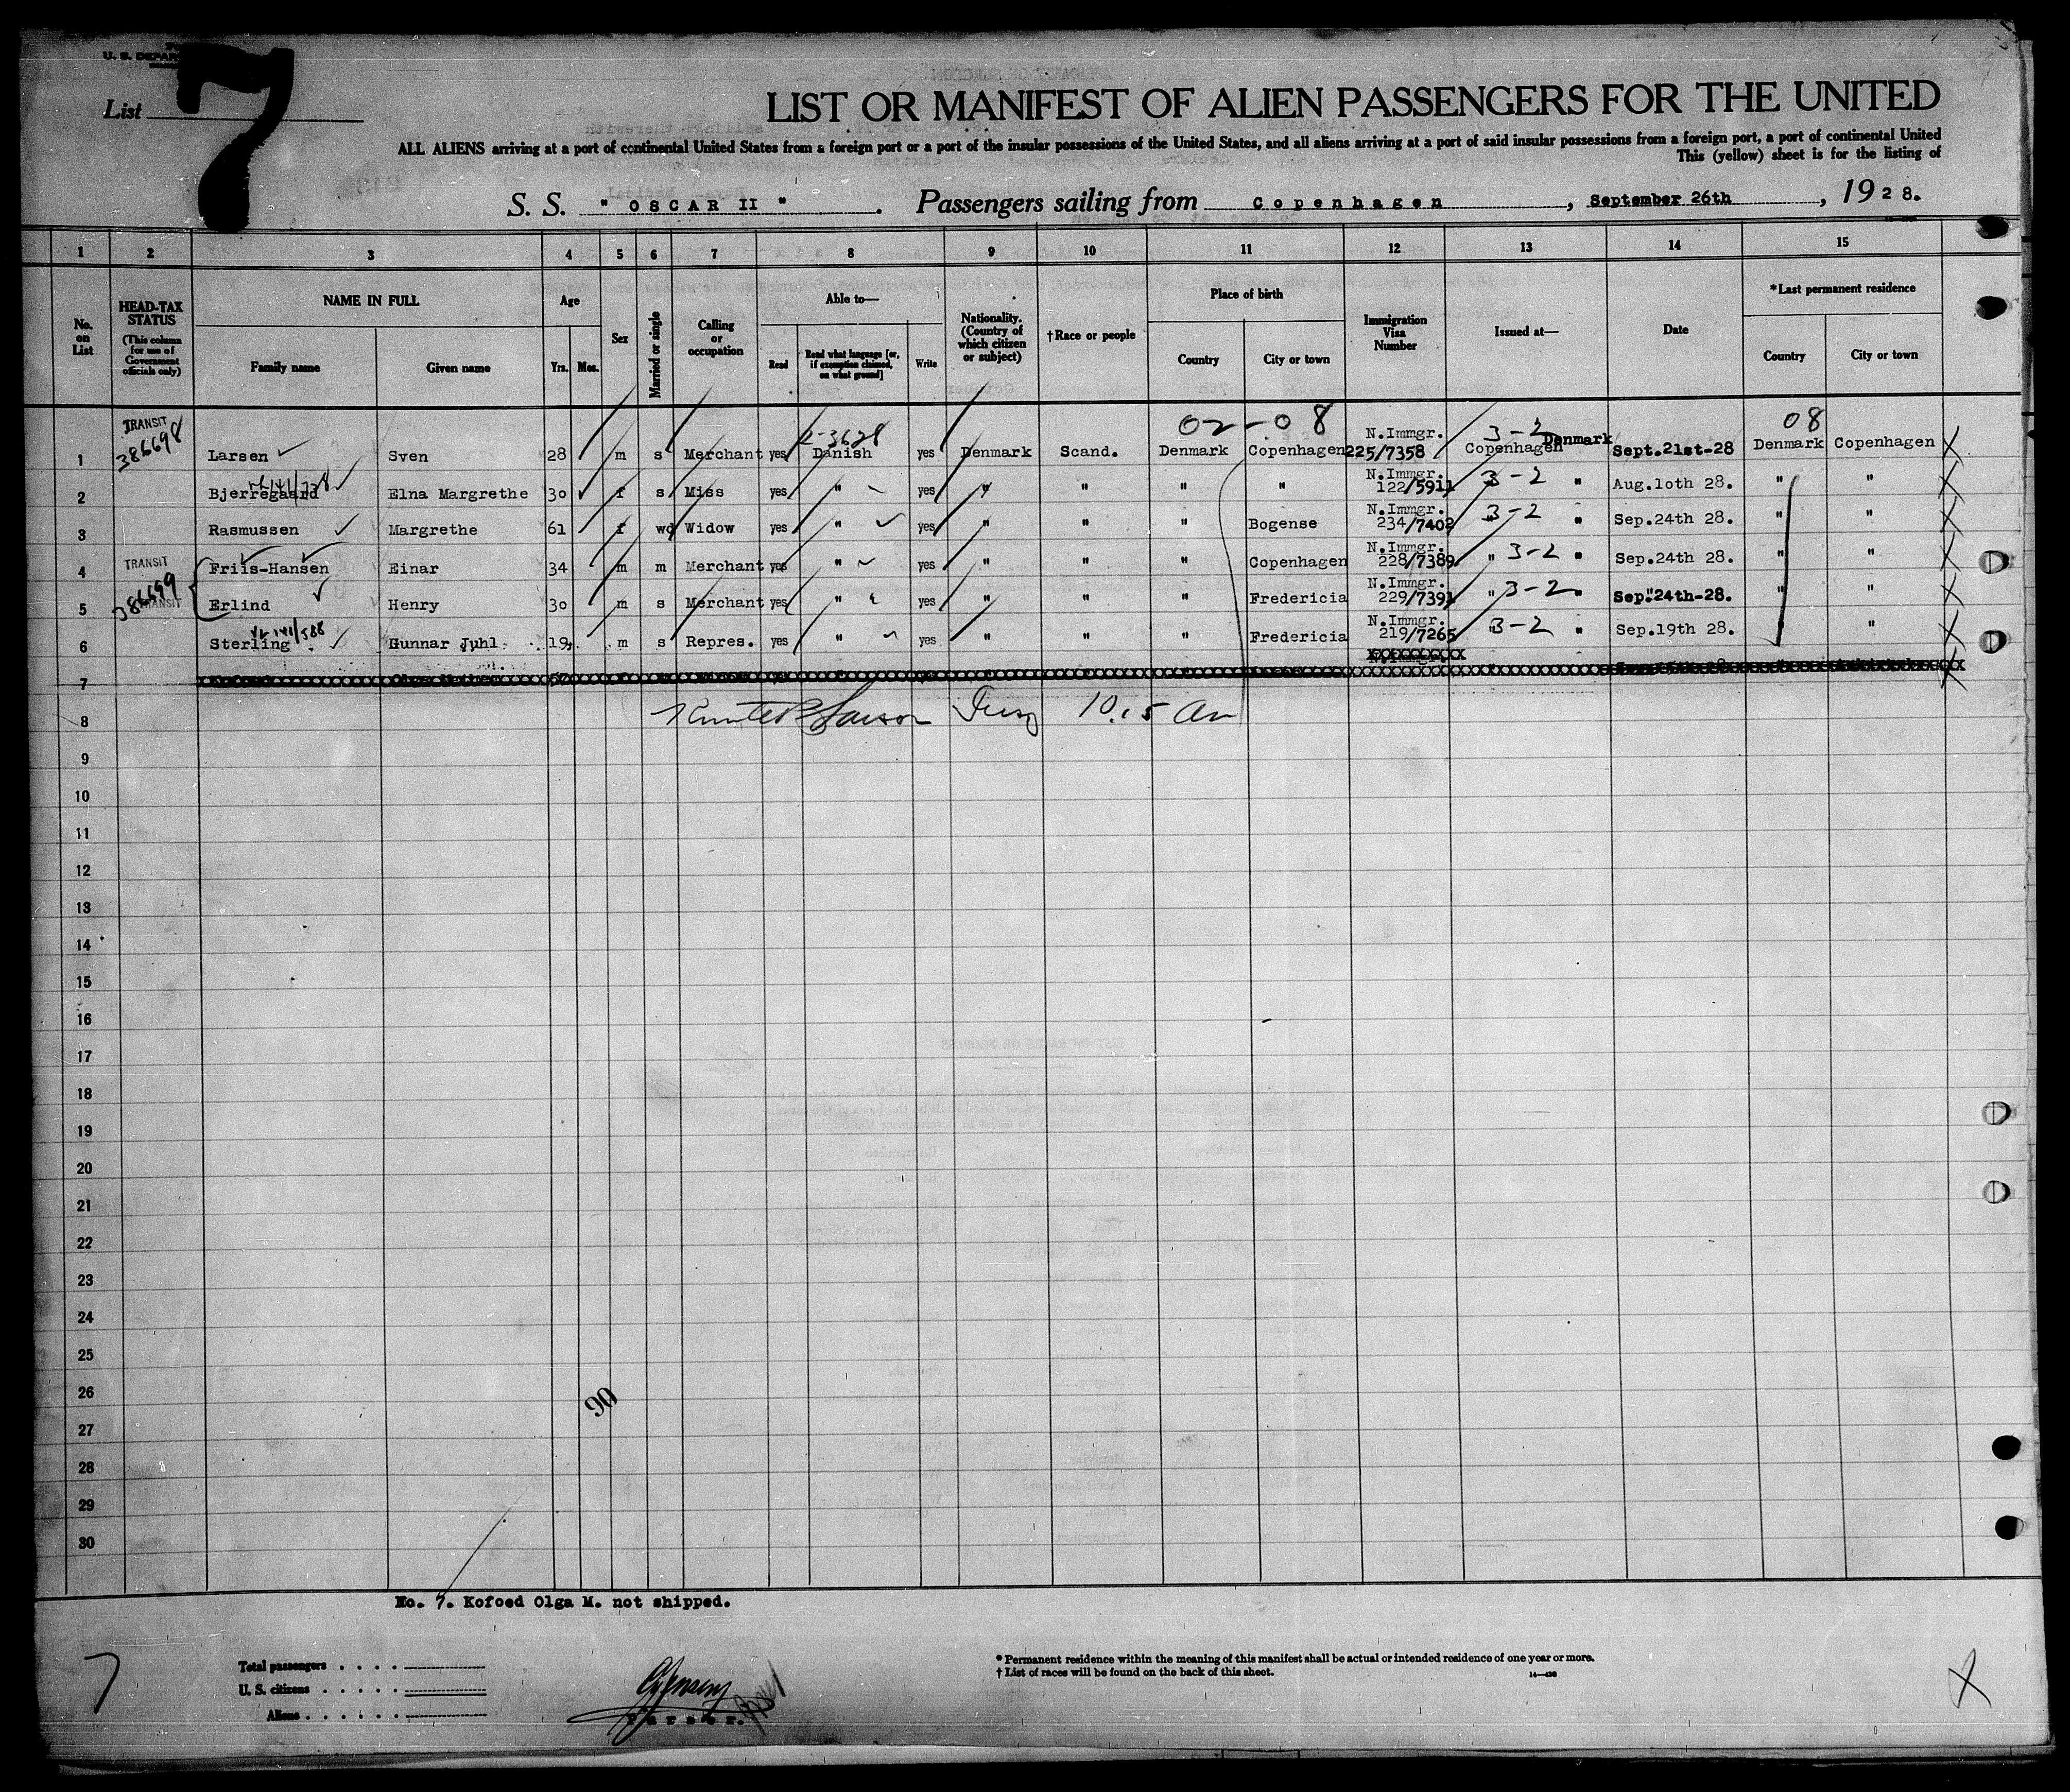 U. S. DEPAR
List 7
LIST OR MANIFEST OF ALIEN PASSENGERS FOR THE UNITED
ALL ALIENS arriving at a port of continental United States from a foreign port or a port of the insular possessions of the United States, and all aliens arriving at a port of said insular possessions from a foreign port, a port of continental United
This (yellow) sheet is for the listing of
S. S. " OSCAR II " . Passengers sailing from Copenhagen , September 26th , 1928.
1 2 3 4 5 6 7 8 9 10 11 12 13 14 15
No. on List
HEAD-TAX STATUS
(This column for use of Government officials only)
NAME IN FULL
Family name Given name
Age
Yrs. Mos.
Sex
Married or single
Calling or occupation
Able to—
Read Read what language [or, if exemption claimed, on what ground] Write
Nationality. (Country of which citizen or subject)
†Race or people
Place of birth
Country City or town
Immigration Visa Number
Issued at—
Date
*Last permanent residence
Country City or town
TRANSIT 02-08 08
386698 2-3628 N.Immgr. 3-2
1 Larsen Sven 28 m s Merchant yes Danish yes Denmark Scand. Denmark Copenhagen 225/7358 Copenhagen Denmark Sept.21st-28 Denmark Copenhagen X
N.Immgr.
2 Bjerregaard Elna Margrethe 30 f s Miss yes " yes " " " " 122/5911 3-2 " Aug.10th 28. " " X
N.Immgr.
3 Rasmussen Margrethe 61 f wd Widow yes " yes " " " Bogense 234/7402 3-2 " Sep.24th 28. " " X
TRANSIT N.Immgr.
4 Friis-Hansen Einar 34 m m Merchant yes " yes " " " Copenhagen 228/7389 " 3-2 " Sep.24th 28. " " X
386699 TRANSIT N.Immgr.
5 Erlind Henry 30 m s Merchant yes " yes " " " Fredericia 229/7391 " 3-2 " Sep.24th-28. " " X
N.Immgr.
6 Sterling Gunnar Juhl 19 m s Repres. yes " yes " " " Fredericia 219/7265 3-2 " Sep.19th 28. " " X
7
8
9
10
11
12
13
14
15
16
17
18
19
20
21
22
23
24
25
26
90
27
28
29
30
No. 7. Kofoed Olga M. not shipped.
7
Total passengers
U. S. citizens
Aliens
Purser.
* Permanent residence within the meaning of this manifest shall be actual or intended residence of one year or more.
† List of races will be found on the back of this sheet.
14—430
X